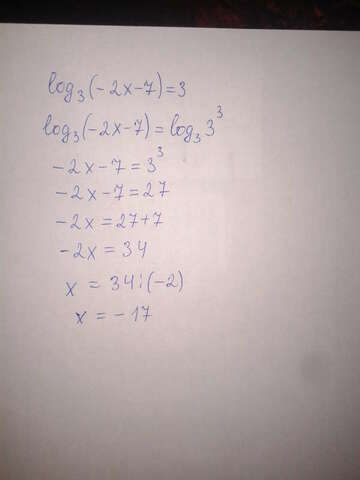 log₃(-2x-7)=3
log₃(-2x-7)=log₃3³
-2x-7=3³
-2x-7=27
-2x=27+7
-2x=34
x=34:(-2)
x=-17